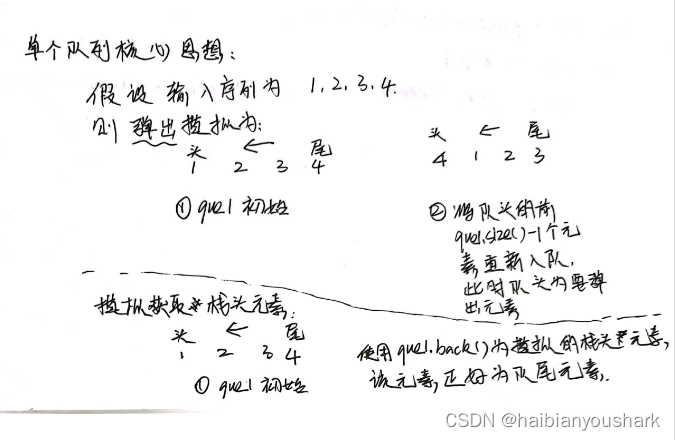 单个队列核心思想：
假设输入序列为 1,2,3,4.
则弹出模拟为：
头 ← 尾
1 2 3 4
① que1 初始
头 ← 尾
4 1 2 3
② 将队头的前
que1.size()-1个元
素重新入队，
此时队头为要弹
出元素
模拟获取栈头元素：
头 ← 尾
1 2 3 4
① que1 初始
使用que1.back()为模拟的栈头元素，
该元素，正好为队尾元素.
CSDN @haibianyoushark